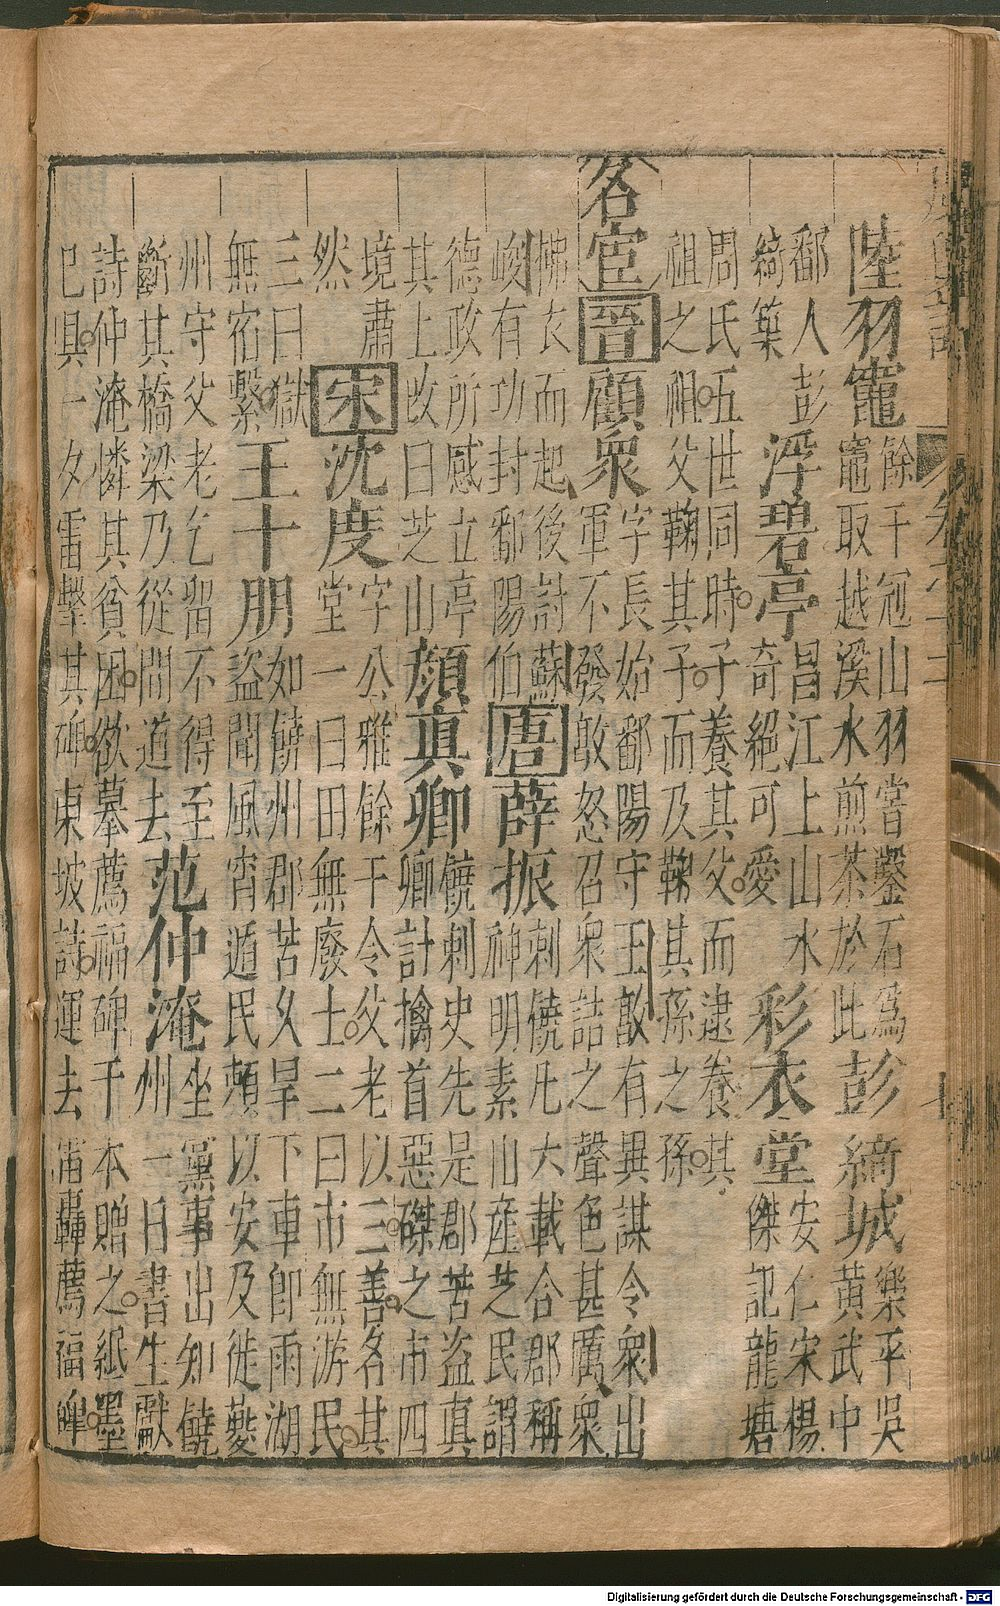 陸羽竈餘干冠山羽嘗鑿石爲竈取越溪水煎茶於此彭綺城樂平吳黃武中
鄱人彭綺築浮碧亭昌江上山水奇絕可愛彩衣堂安仁宋楊傑記龍塘
周氏五世同時子養其父而逮養其
祖之祖父鞠其子而及鞠其孫之孫
名宦晉顧衆字長始鄱陽守王敦有異謀令衆出軍不發敦怒召衆詰之聲色甚厲衆
怫衣而起後討蘇峻有功封鄱陽伯唐薛振刺饒凡大載合郡稱神明素山產芝民謂
德政所感立亭其上改曰芝山顏真卿饒刺史先是郡苦盜真卿計擒首惡磔之市四
境肅然宋沈度字公雅餘干令父老以三善名其堂一曰田無廢土二曰市無游民
三曰獄無宿繫王十朋如饒州郡苦久旱下車卽雨湖盜聞風宵遁民頼以安及徙夔
州守父老乞留不得至斷其橋梁乃從間道去范仲淹坐黨事出知饒州一日書生獻
詩仲淹憐其貧困欲摹薦福碑千本贈之紙墨
已具一夕雷擊其碑東坡詩運去雷轟薦福碑
Digitalisierung gefördert durch die Deutsche Forschungsgemeinschaft - DFG